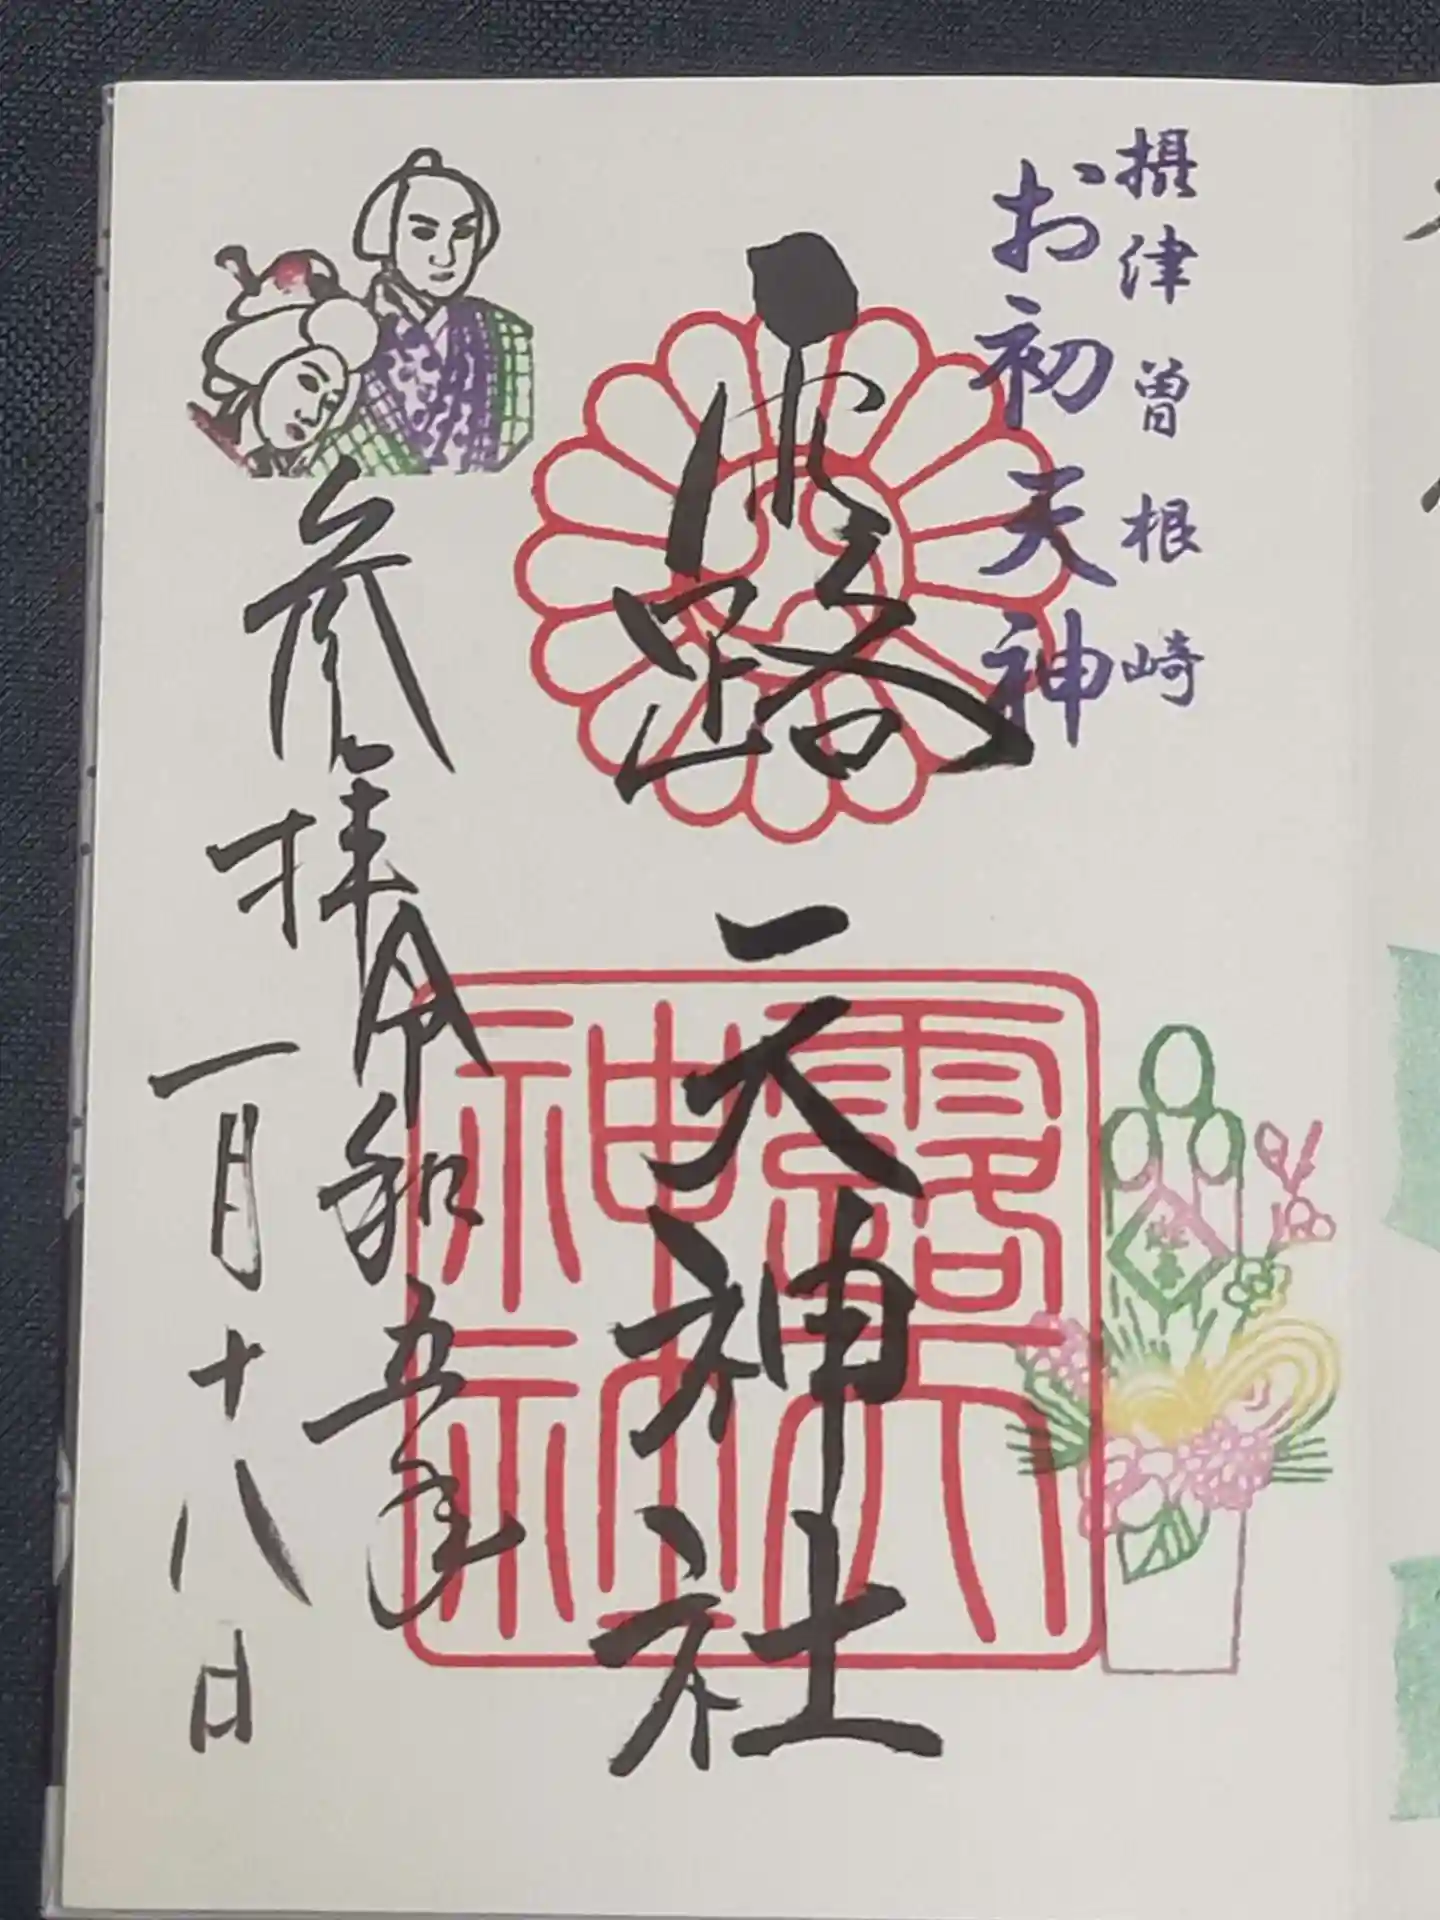 摂津曽根崎
お初天神
露天神社
露天神社
迎春
参拝
令和五年
一月十八日